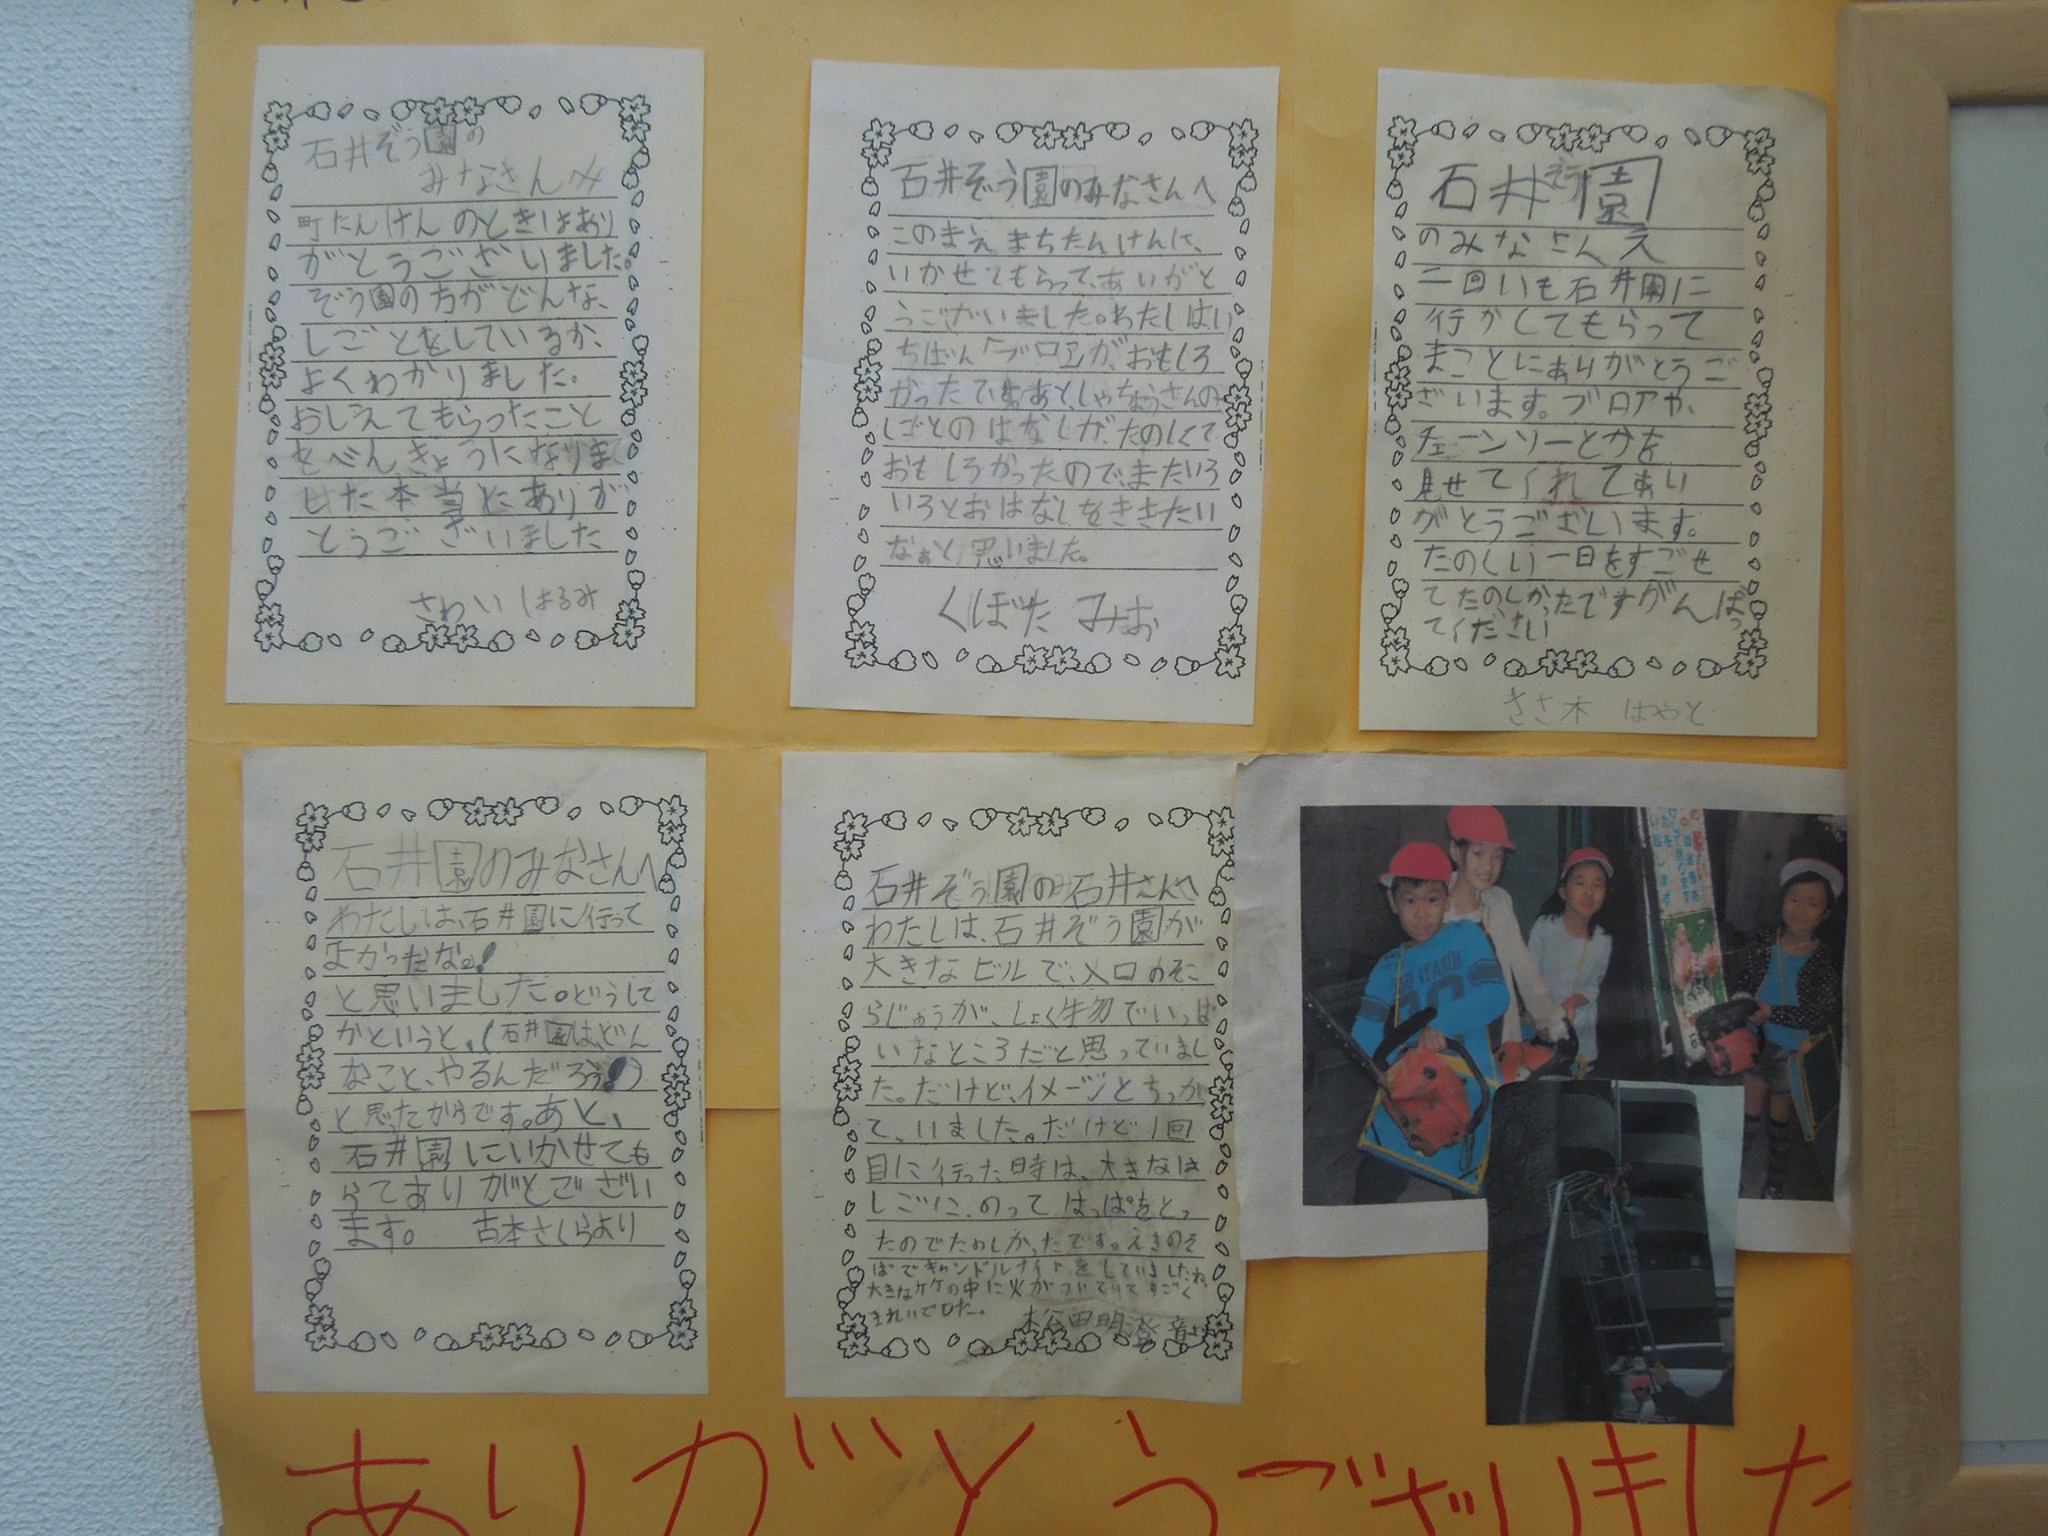 石井ぞう園の
みなさんへ
町たんけんのときはあり
がとうございました。
ぞう園の方がどんな、
しごとをしているか、
よくわかりました。
おしえてもらったこと
をべんぎょうになりまし
した本当にありが
とうございました
さわい はるみ
石井ぞう園のみなさんへ
このまえ、まちたんけんに、
いかせてもらって、ありがと
うございました。わたしはい
ちばん「ブロア」が、おもしろ
かったです。あと、しゃちょうさんの
しごとのはなしが、たのしくて
おもしろかったので、またいろ
いろとおはなしをききたい
なぁと思いました。
くぼた みお
石井ぞう園
のみなさんえ
二回いも石井園に
行かしてもらって
まことにありがとうご
ざいます。ブロアや、
チェーンソーとかを
見せてくれてあり
がとうございます。
たのしい一日をすごせ
てたのしかったですがんばっ
てください
ささ木 はやと
石井園のみなさんへ
わたしは、石井園に行って
よかったな。!
と思いました。どうして
かというと、(石井園は、どん
なこと、やるんだろう!)
と思ったからです。あと、
石井園にいかせても
らてありがとございい
ます。 古本さくらより
石井ぞう園の石井さんへ
わたしは、石井ぞう園が
大きなビルで、入口のそこ
らじゅうが、しょく物でいっぱ
いなところだと思っていまし
た。だけど、イメージとちっが
て、いました。だけど、1回
目に行った時は、大きなは
しごに、のって、はっぱをとっ
たのでたのしかったです。えきのそ
ばでキャンドルナイトをしていましたね。
大きなケケの中に火がついていてすごく
きれいでした。
松田明澄
ありがとうございました